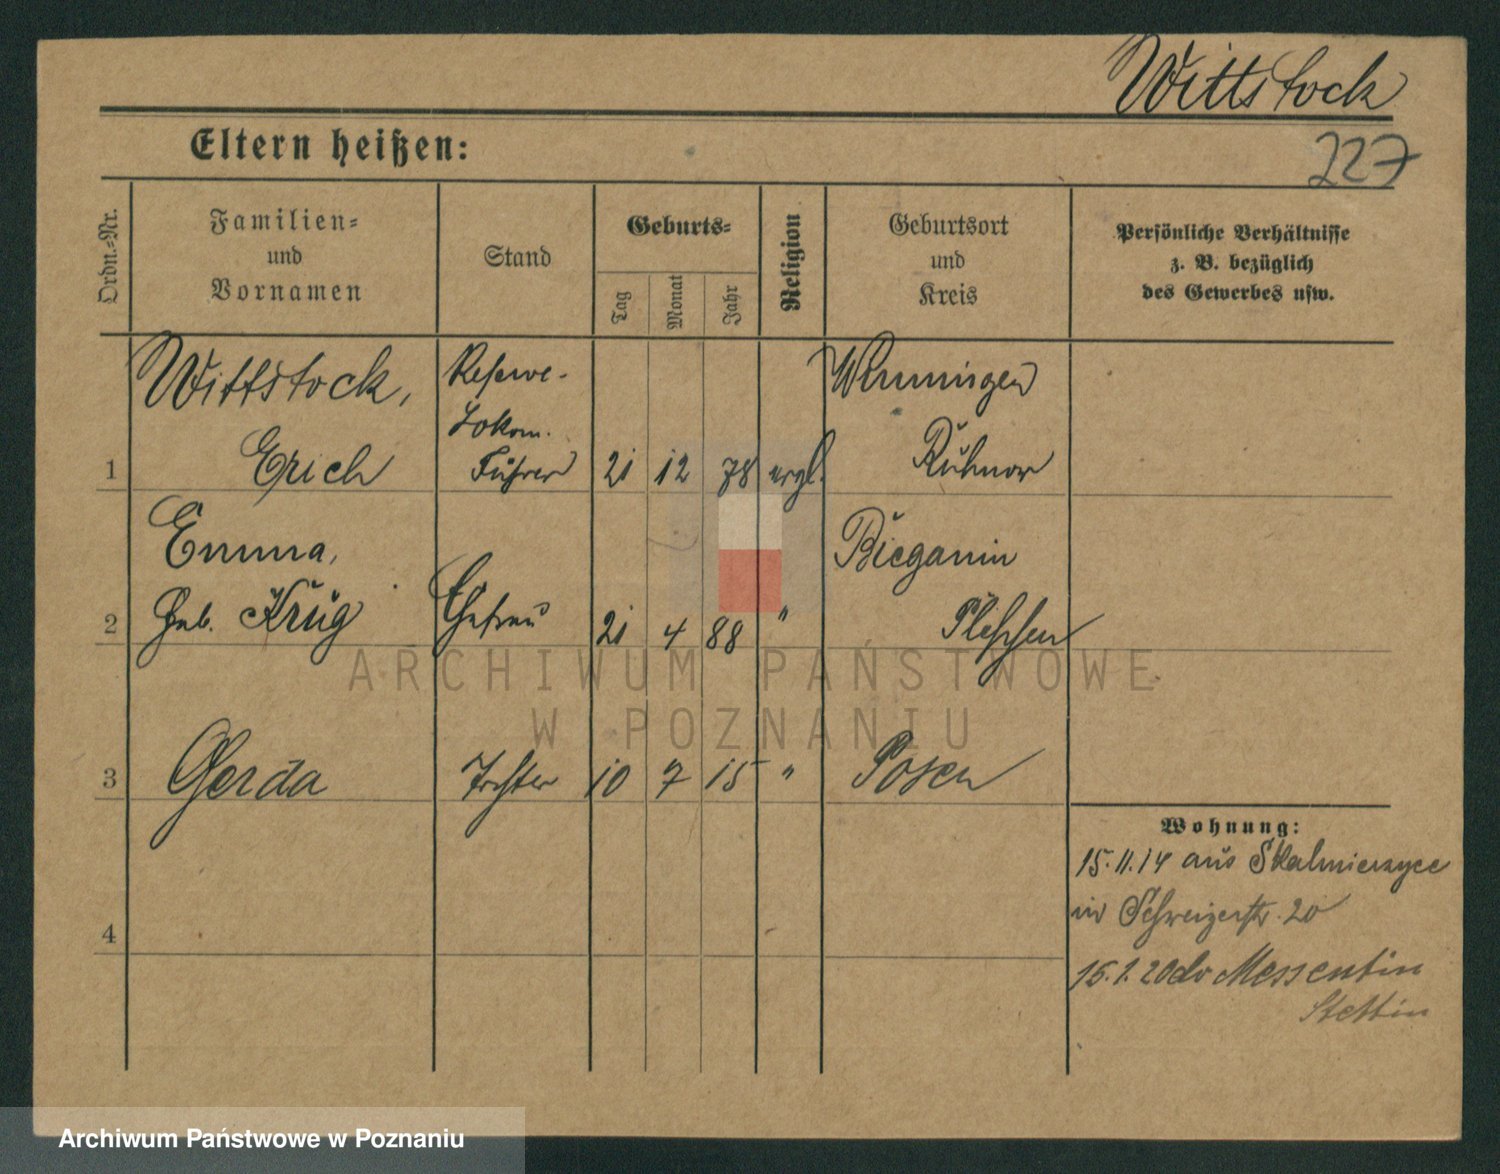 Wittstock
227
Eltern heißen:
Ordn.-Nr.
Familien-
und
Vornamen
Stand
Geburts-
Tag
Monat
Jahr
Religion
Geburtsort
und
Kreis
Persönliche Verhältnisse
z. B. bezüglich
des Gewerbes usw.
1
Wittstock,
Erich
Reserve-
Lokom.
Führer
21 12 78
Wenningen
2
Emma,
geb. Krug
Ehefrau
21 4 88 "
Bieganin
Pleschen
3
Gerda
Tochter
10 7 15 "
Posen
4
Wohnung:
15.11.14 aus Skalmierzyce
in Schweizerstr. 20
15.1.20 Messentin
Stettin
ARCHIWUM PAŃSTWOWE
W POZNANIU
Archiwum Państwowe w Poznaniu